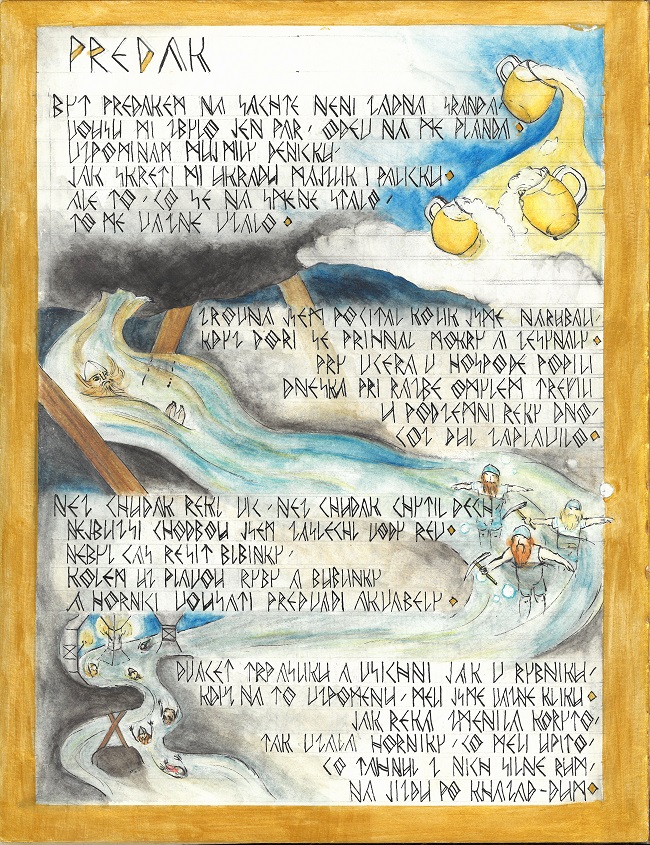 PREDAK
BYT PREDAKEM NA SACHTE NENI ZADNA SRANDA,
VOUSU MI ZBYLO JEN PAR, ODEV NA ME PLANDA.
VZPOMINAM MUJ MILY DENICKU,
JAK SKRETI MI UKRADLI MAJZLIK I PALICKU.
ALE TO, CO SE NA SMENE STALO,
TO ME VAZNE VZALO.
ZROVNA JSEM POCITAL KOLIK JSME NARUBALI,
KDYZ DORI SE PRIHNAL MOKRY A ZESINALY.
PRY VCERA V HOSPODE POPILI
DNESKA PRI RAZBE OMYLEM TREFILI
V PODZEMNI REKY DNO,
COZ DUL ZAPLAVILO.
NEZ CHUDAK REKL VIC, NEZ CHUDAK CHYTIL DECH,
NEJBLIZSI CHODBOU JSEM ZASLECHL VODY REV.
NEBYL CAS RESIT BLBINKY,
KOLEM UZ PLAVOU RYBY A BUBLINKY
A HORNICI VOUSATI PREDVADI AKVABELY.
DVACET TRPASLIKU A VSICHNI JAK V RYBNIKU,
KDYZ NA TO VZPOMENU, MELI JSME VAZNE KLIKU.
JAK REKA ZMENILA KORYTO,
TAK VZALA HORNIKY, CO MELI UPITO,
CO TAHNUL Z NICH SILNE RUM,
NA JIZDU PO KHAZAD-DUM.